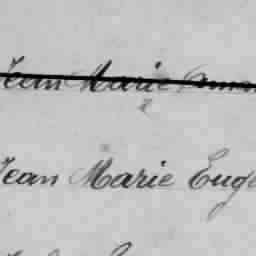 Jean Marie
Jean Marie Euge